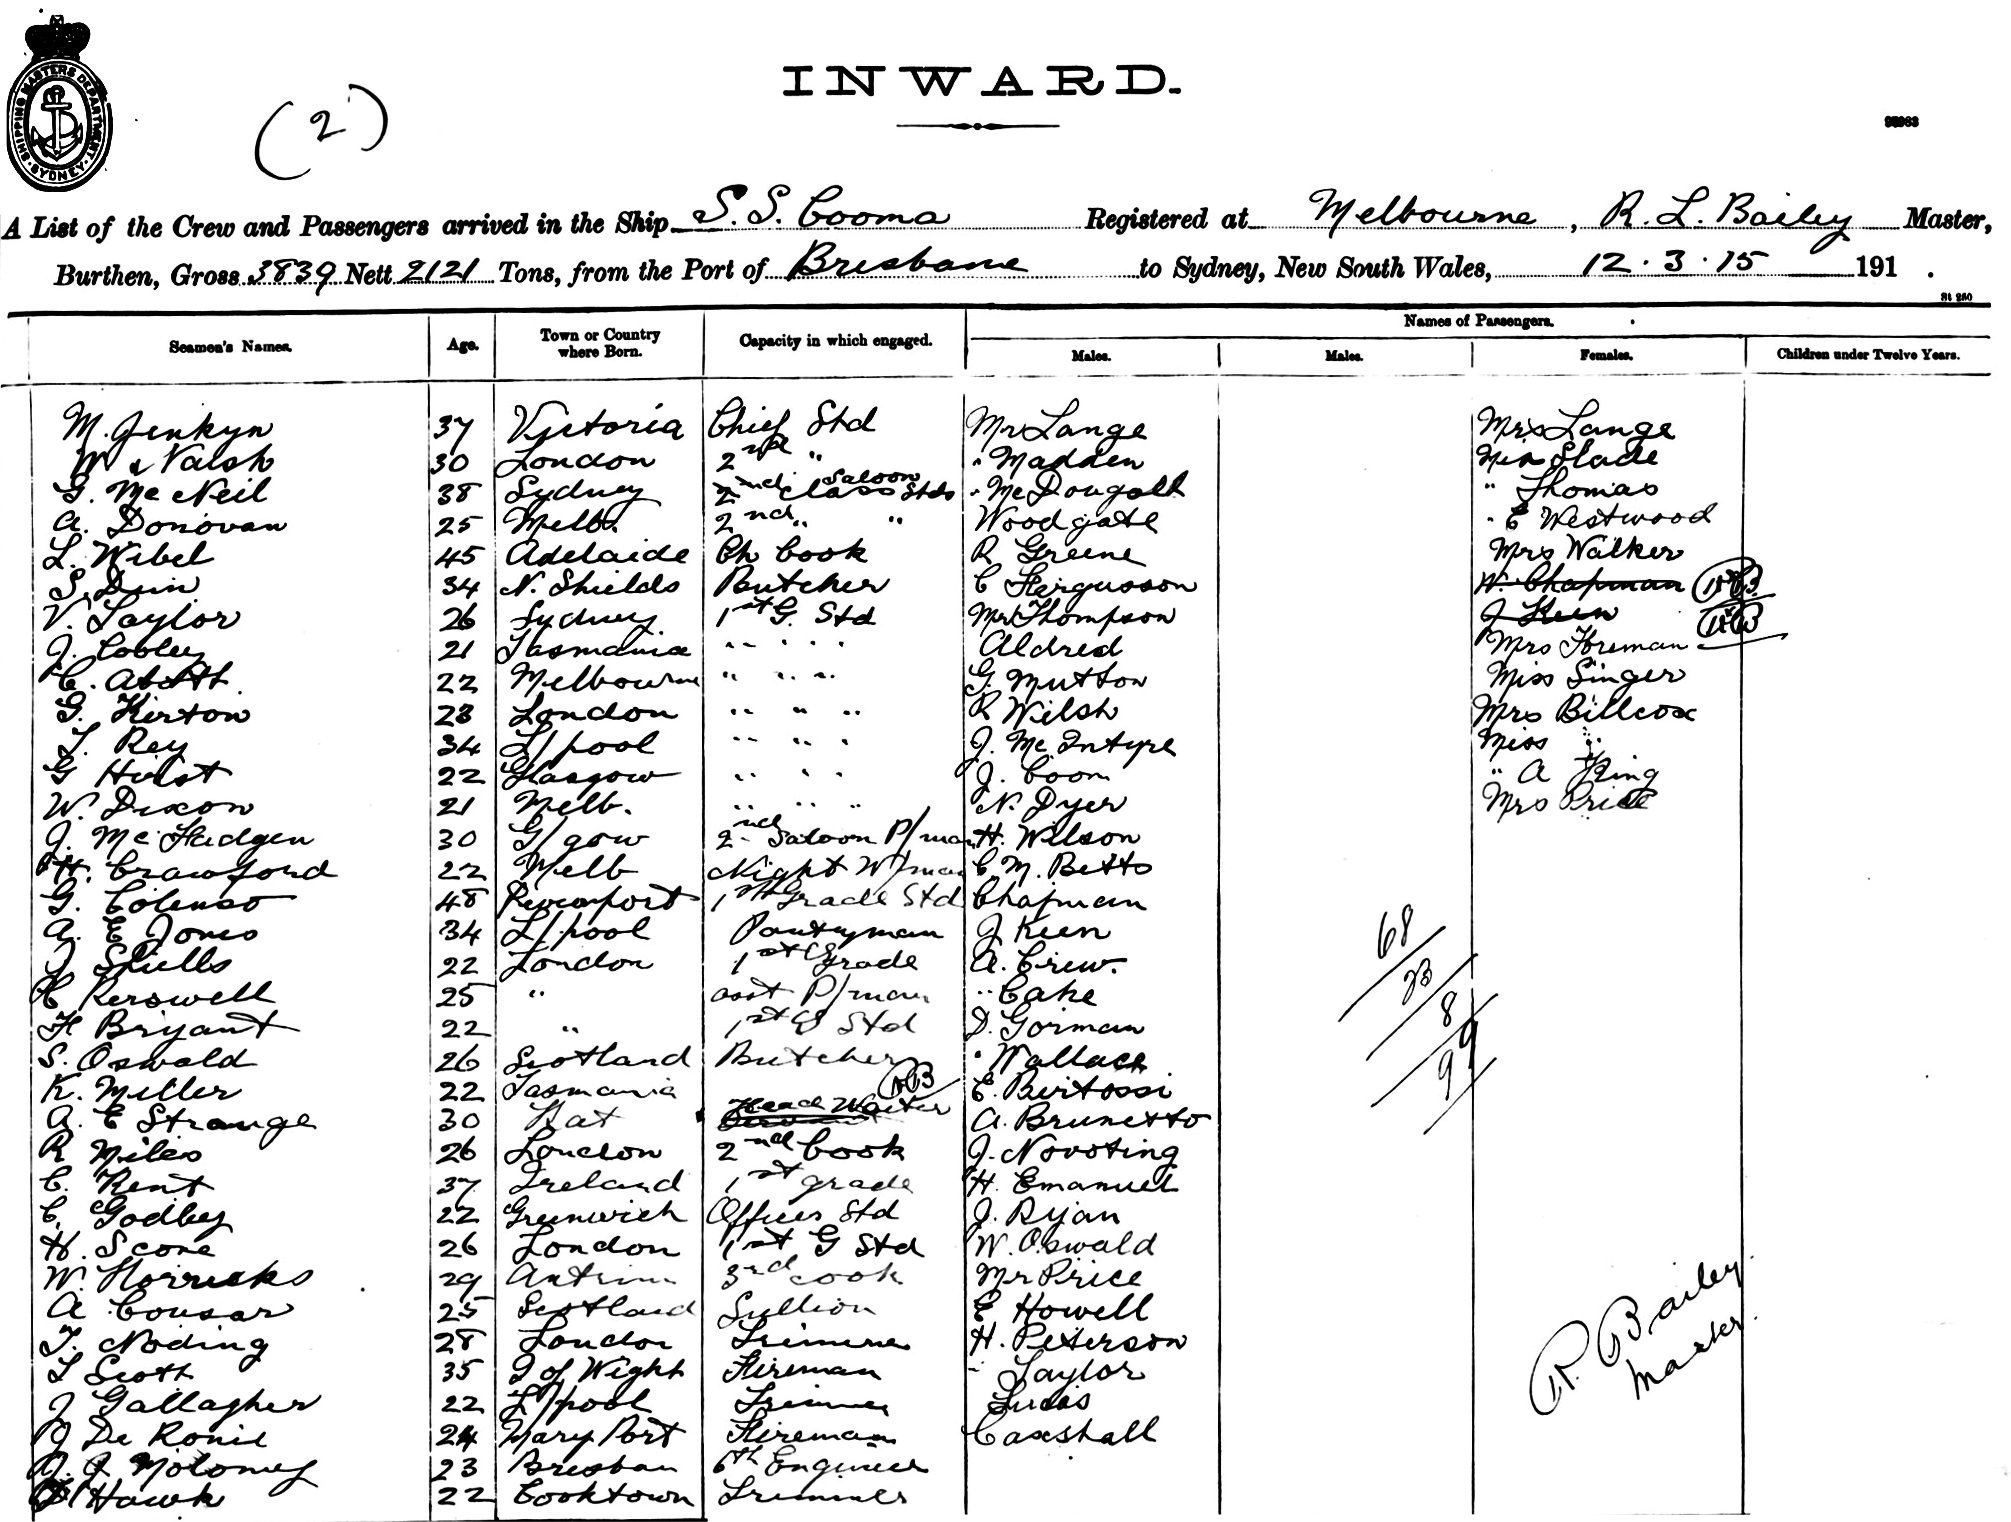 SHIPPING MASTERS DEPARTMENT. SYDNEY.
(2)
INWARD.
A List of the Crew and Passengers arrived in the Ship S. S. Cooma Registered at Melbourne, R. L. Bailey Master,
Burthen, Gross 3839 Nett 2121 Tons, from the Port of Brisbane to Sydney, New South Wales, 12.3.15 191 .
St 250
Names of Passengers.
Seamen's Names. Age. Town or Country where Born. Capacity in which engaged. Males. Males. Females. Children under Twelve Years.
M. Jenkyn 37 Victoria Chief Std Mr Lange Mrs Lange
W Walsh 30 London 2nd " " Madden Slade
G. McNeil 38 Sydney 2nd class Saloon Stds " McDougall " Thomas
A. Donovan 25 Melb. 2nd " " Woodgate " E Westwood
L. Wibel 45 Adelaide Ch Cook R Greene Mrs Walker
S. Dun 34 N. Shields Butcher C Fergusson W. Chapman
V. Taylor 26 Sydney 1st G. Std Mr Thompson J Keen
J. Cobley 21 Tasmania " " " " Aldred Mrs Foreman
C. Abott 22 Melbourne " " " " G. Mutton Miss Singer
G. Kirton 28 London " " " R Wilsh Mrs Billcox
T. Rey 34 L/pool " " " J. McIntyre Miss "
G Hirst 22 Glasgow " " " J. Coom " A King
W. Dixon 21 Melb. " " " N. Dyer Mrs Price
J. McFadgen 30 G/gow 2nd Saloon P/man H. Wilson
H. Crawford 22 Melb Night W/man C. M. Betts
G. Colenso 48 1st Grade Std Chapman
A. E Jones 34 L/pool Pantryman J Keen
J Shells 22 London 1st Grade A. Crew.
C Kerswell 25 " asst P/man " Cake
H Bryant 22 " 1st G Std D. Gorman
S. Oswald 26 Scotland Butcher " Wallace
K. Miller 22 Tasmania E. Bertossi
A. E Strange 30 Head Waiter A. Brunetto
R Miles 26 London 2nd Cook J. Novoting
C. Kent 37 Ireland 1st grade H. Emanuel
C. Godbey 22 Greenwich Officers Std J. Ryan
H. Scone 26 London 1st G Std W. Oswald
W. Horricks 29 Antrim 3rd cook Mr Price
A Cousar 25 Scotland Scullion E Howell
T. Noding 28 London Trimmer H. Peterson
T Scott 35 I of Wight Fireman " Taylor
J Gallagher 22 L/pool Trimmer Lucas
J De Ronie 24 Mary Port Fireman Caxshall
J Moloney 23 Brisban 6th Engineer
Hawk 22 Cooktown Trimmer
68
23
8
99
R. Bailey
Master.